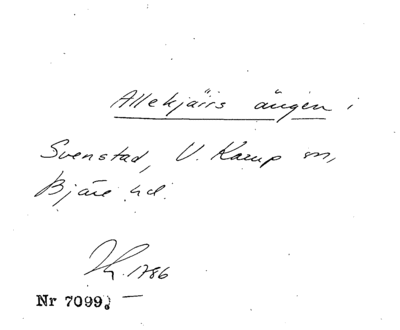 Allekjärrs ängen i
Svenstad, V. Karup sn,
Bjäre hd.
1786
Nr 7099.